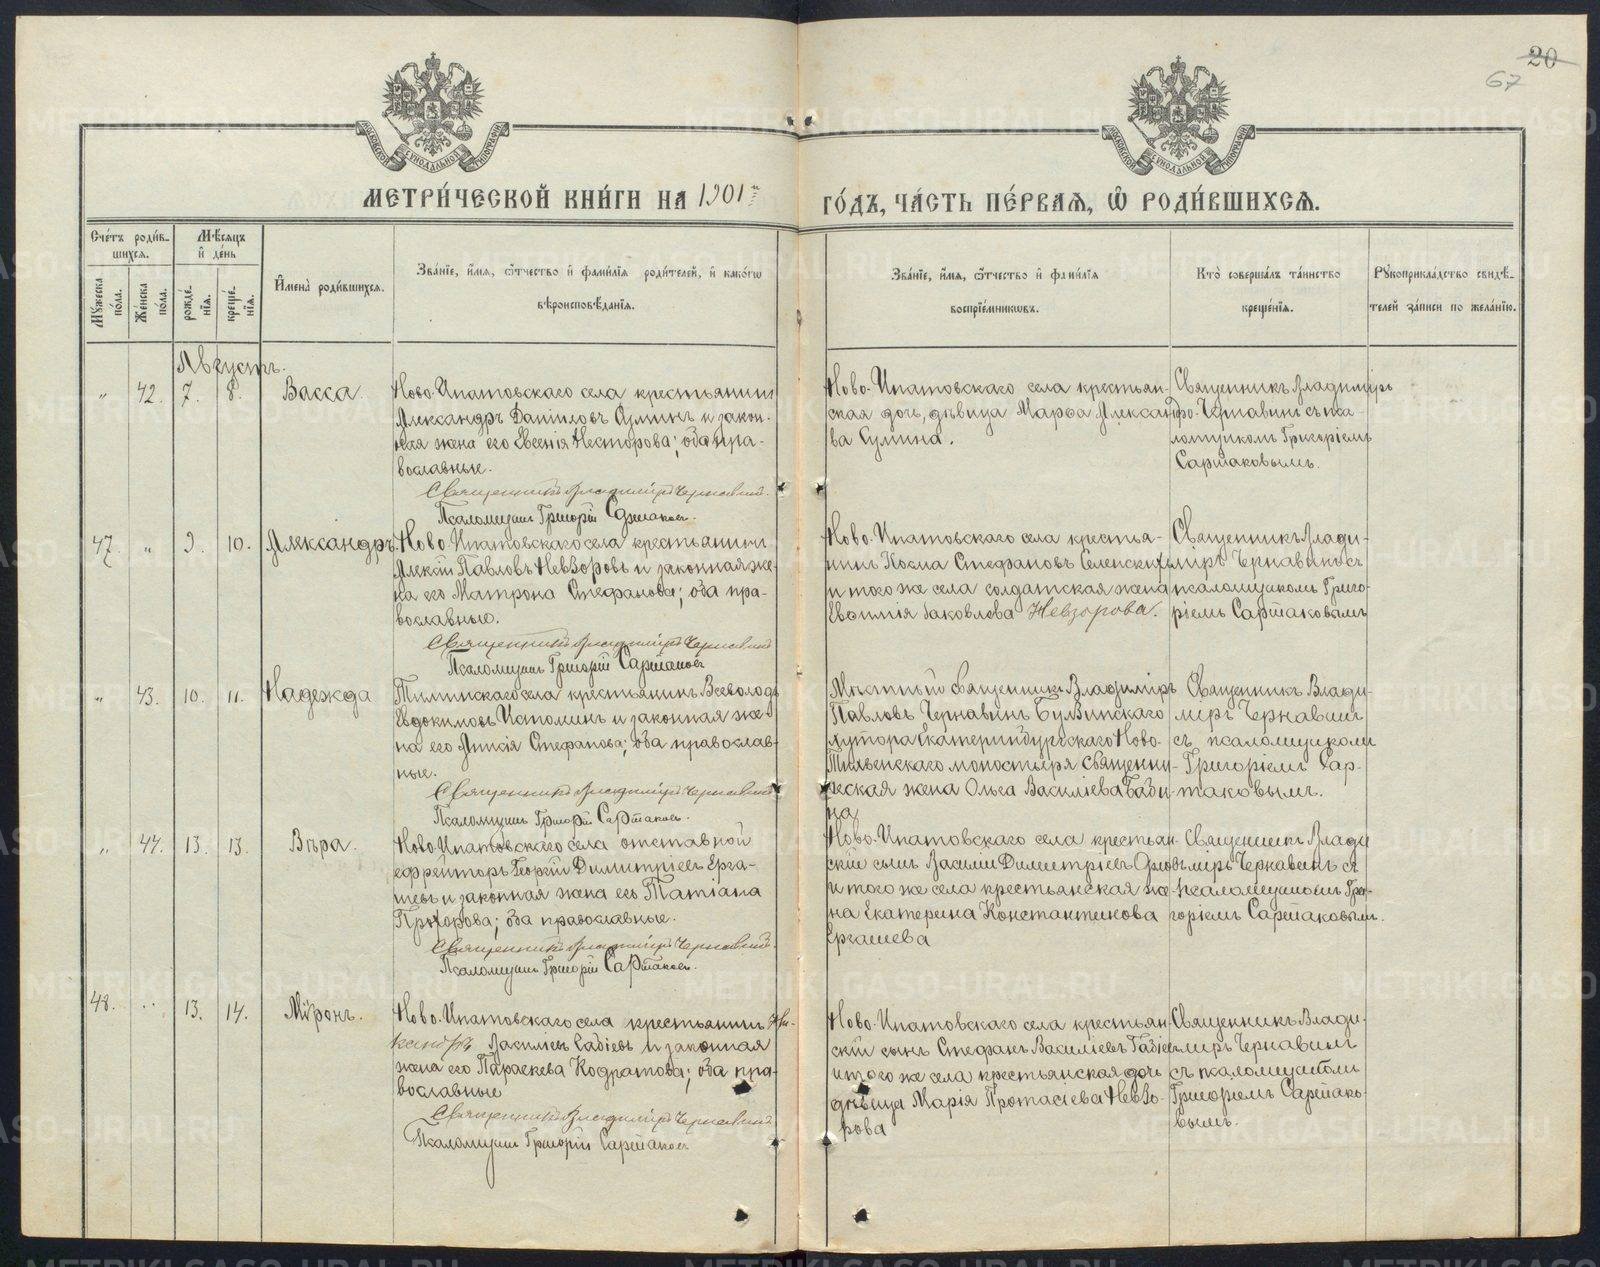 20
67
МЕТРИ́ЧЕСКОЙ КНИ́ГИ НА 1901й
ГО́ДЪ, ЧА́СТЬ ПЕ́РВАЯ, Ѡ РОДИ́ВШИХСЯ.
Сче́тъ роди́в-
шихся.
Му́жеска
по́ла.
Же́нска
по́ла.
Мѣ́сяцъ
и де́нь
рожде́-
нія.
креще́-
нія.
Имена̀ роди́вшихся.
Зва́ніе, и́мя, ѻ҆́тчество и фами́лія роди́телей, и како́гѡ
вѣроисповѣ́данія.
Зва́ніе, и́мя, ѻ҆́тчество и фами́лія
воспріе́мникѡвъ.
Кто̀ соверша́лъ та́инство
креще́нія.
Рꙋкоприкла́дство свидѣ́-
телей за́писи по жела́нію.
Августъ.
" 42. 7. 8. Васса.
Ново-Ипатовскаго села крестьянинъ
Александръ Даніиловъ Сулинъ и закон-
ная жена его Евгенія Несторова; оба пра-
вославные.
Священникъ Владиміръ Чернавинъ.
Псаломщикъ Григорій Сартаковъ.
Ново-Ипатовскаго села крестьян-
ская дочь, дѣвица Марѳа Алексан
ва Сулина.
Священникъ Владиміръ
Чернавинъ съ пса-
ломщикомъ Григоріемъ
Сартаковымъ.
47. " 9. 10. Александръ.
Ново-Ипатовскаго села крестьянинъ
Алексій Павловъ Невзоровъ и законная же-
на его Матрона Стефанова; оба пра-
вославные.
Священникъ Владиміръ Чернавинъ
Псаломщикъ Григорій Сартаковъ
Ново-Ипатовскаго села крестья-
нинъ Косма Стефановъ
и того же села солдатская жена
Евѳимія Іаковлева Невзорова.
Священникъ Влади-
міръ Чернавинъ съ
псаломщикомъ Григо-
ріемъ Сартаковымъ
" 43. 10. 11. Надежда
села крестьянинъ Всеволодъ
Евдокимовъ Истоминъ и законная же-
на его Анисія Стефанова; оба православ-
ные.
Священникъ Владиміръ Чернавинъ
Псаломщикъ Григорій Сартаковъ.
Мѣстный священникъ Владиміръ
Павловъ Чернавинъ
хутора Екатеринбургскаго Ново-
Тихвинскаго монастыря священни-
ческая жена Ольга Василіева Баби-
на
Священникъ Влади-
міръ Чернавинъ
съ псаломщикомъ
Григоріемъ Сар-
таковымъ.
" 44. 13. 13. Вѣра.
Ново-Ипатовскаго села отставной
ефрейторъ Георгій Димитріевъ Ерга-
шевъ и законная жена его Татіана
Прохорова; оба православные.
Священникъ Владиміръ Чернавинъ.
Псаломщикъ Григорій Сартаковъ.
Ново-Ипатовскаго села крестьян-
скій сынъ Василій Димитріевъ
и того же села крестьянская же-
на Екатерина Константинова
Ергашева
Священникъ Влади
міръ Чернавинъ съ
псаломщикомъ Гри-
горіемъ Сартаковымъ.
48. " 13. 14. Миронъ.
Ново-Ипатовскаго села крестьянинъ Ни-
кандръ Василіевъ Бабіевъ и законная
жена его Параскева Кодратова; оба пра-
вославные
Священникъ Владиміръ Чернавинъ
Псаломщикъ Григорій Сартаковъ
Ново-Ипатовскаго села крестьян-
скій сынъ Стефанъ Василіевъ Бабіевъ
и того же села крестьянская дочь
дѣвица Марія Протасіева Невзо-
рова
Священникъ Влади-
міръ Чернавинъ
съ псаломщикомъ
Григоріемъ Сартако-
вымъ.
METRIKI.GASO-URAL.RU